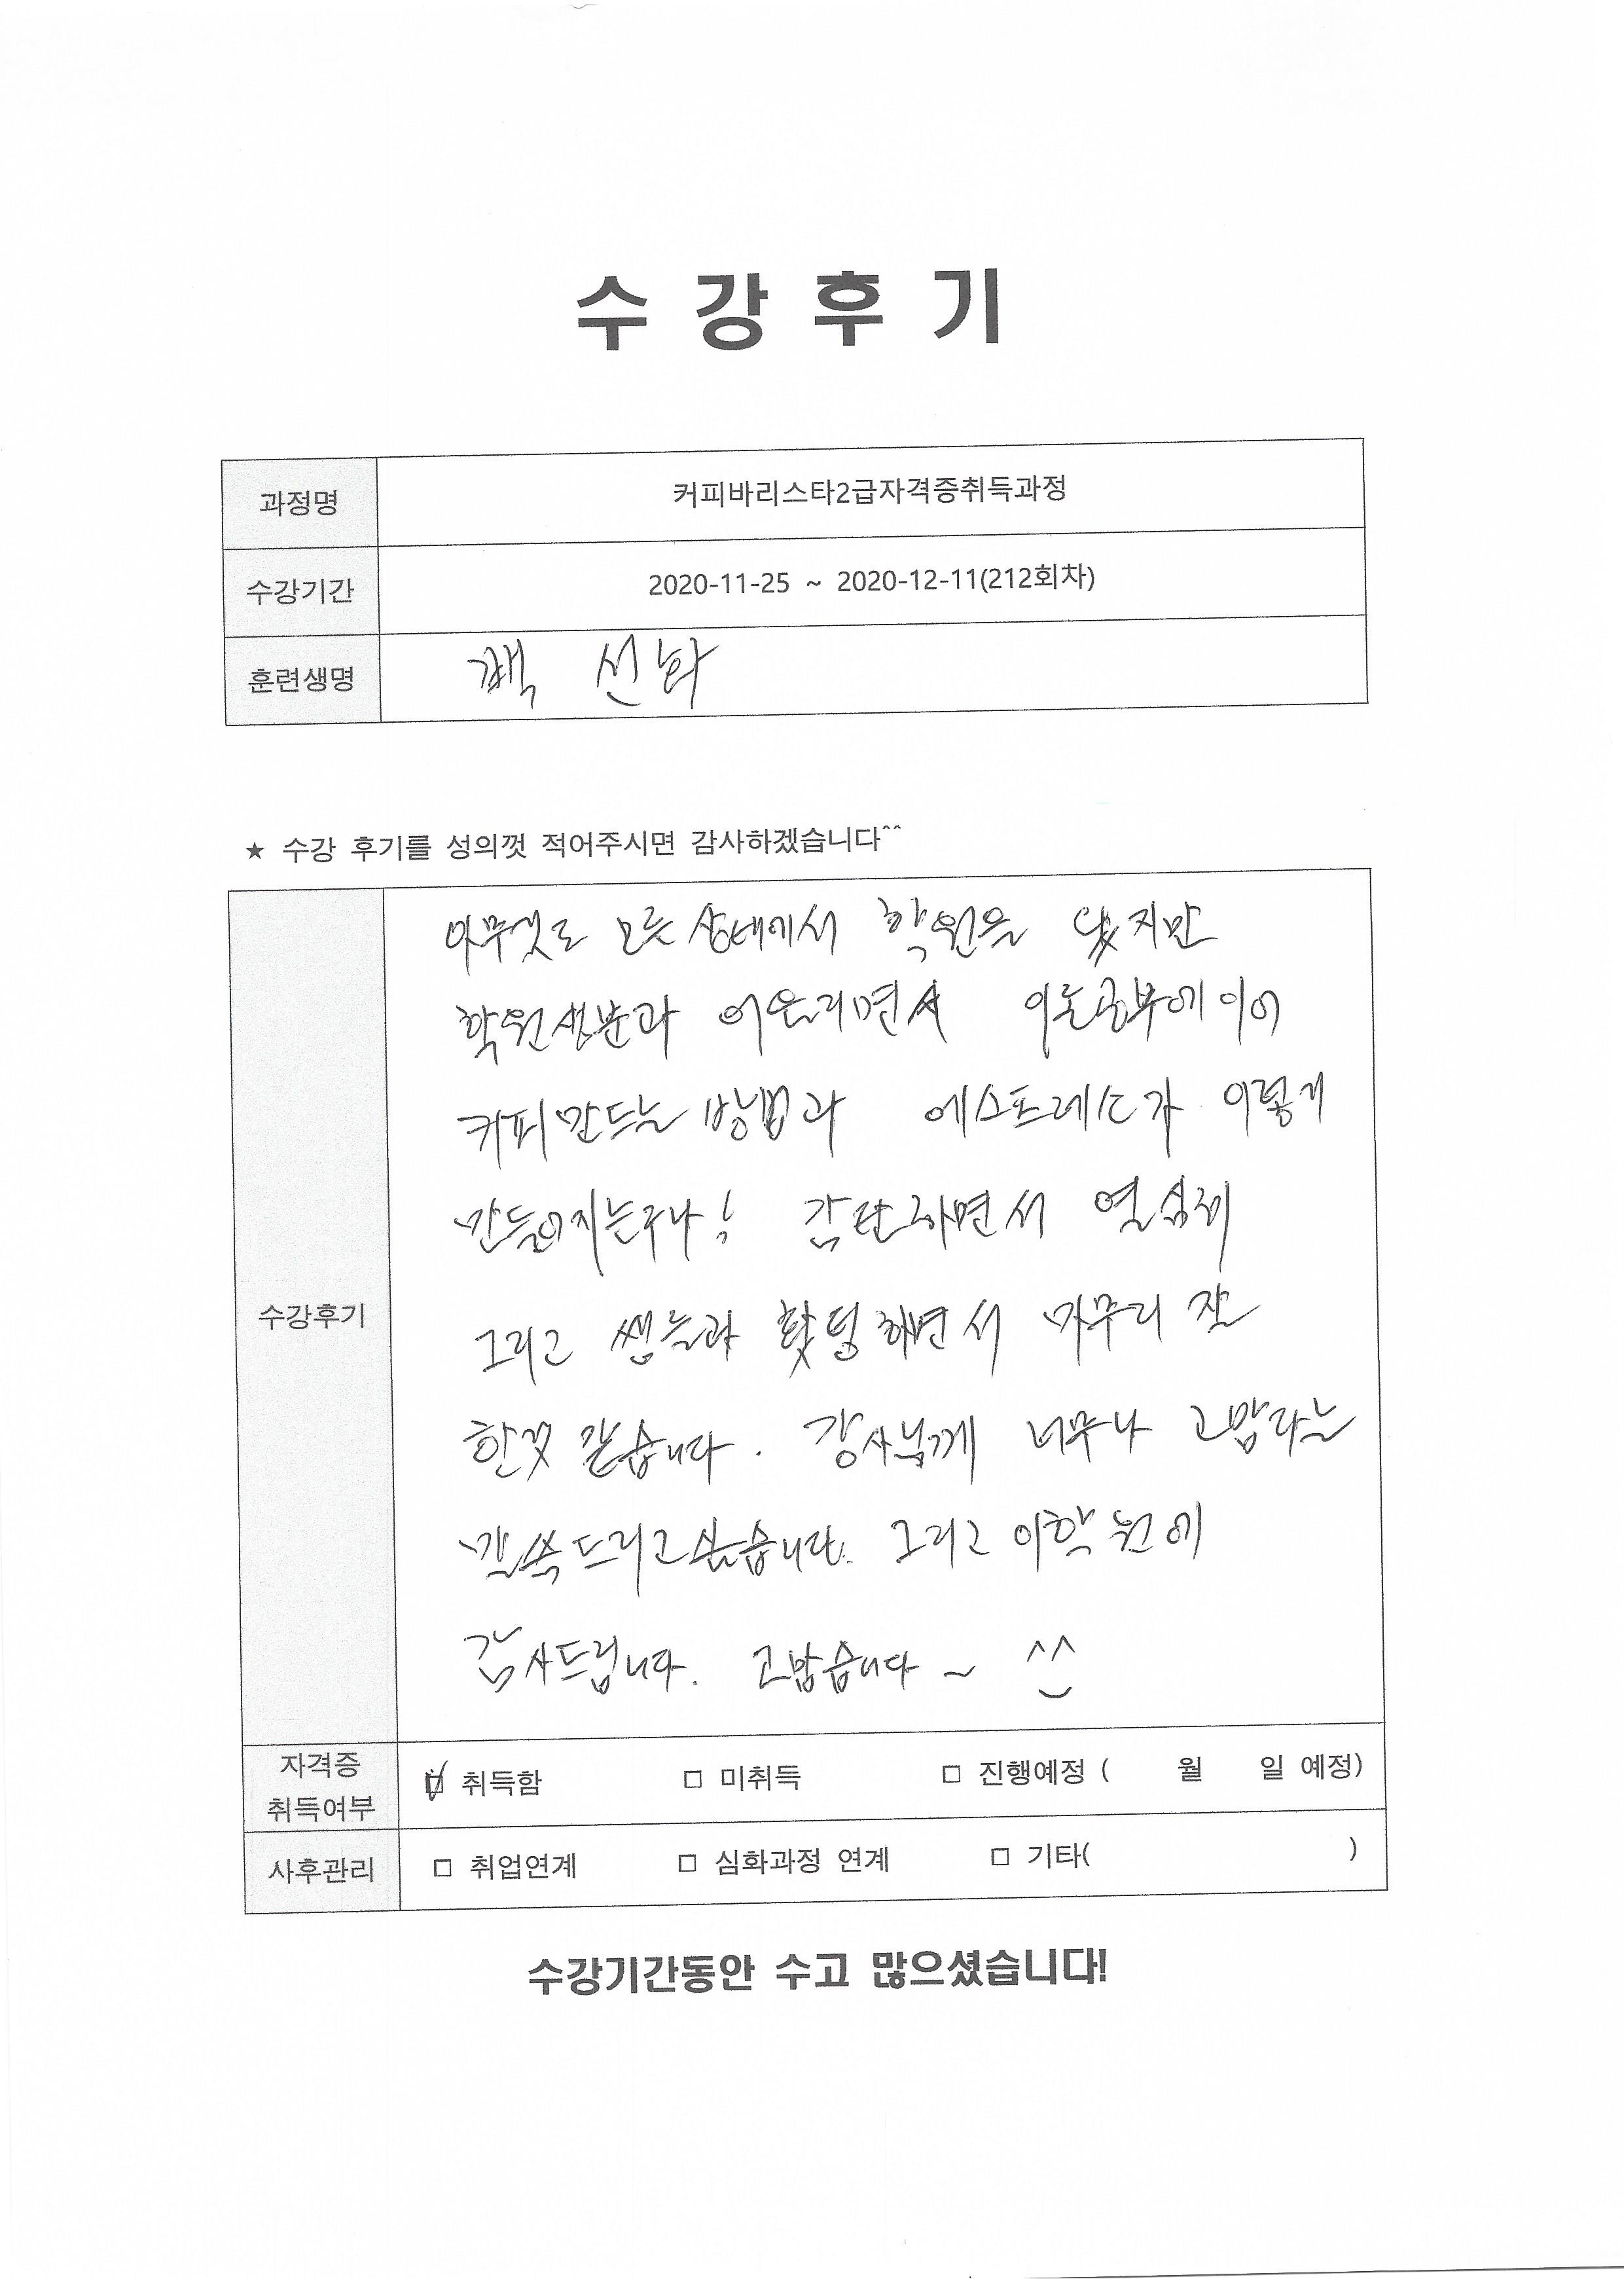 수 강 후 기
과정명 커피바리스타2급자격증취득과정
수강기간 2020-11-25 ~ 2020-12-11(212회차)
훈련생명 선화
★ 수강 후기를 성의껏 적어주시면 감사하겠습니다^^
아무것도 모른 상태에서 학원을 왔지만
학원생분과 어울리면서 이론공부에 이어
커피 만드는 방법과 에스프레소가 이렇게
만들어지는구나! 감탄하면서 열심히
그리고 쌤들과 홧팅하면서 마무리 잘
한것 같습니다. 강사님께 너무나 고맙다는
말씀드리고싶습니다. 그리고 이학원에
감사드립니다. 고맙습니다 ~ ^^
수강후기
자격증
취득여부 ☑ 취득함 □ 미취득 □ 진행예정 ( 월 일 예정)
사후관리 □ 취업연계 □ 심화과정 연계 □ 기타( )
수강기간동안 수고 많으셨습니다!